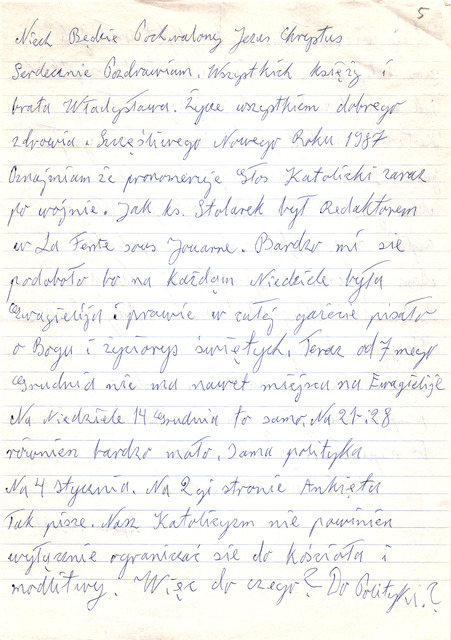 5
Niech Będzie Pochwalony Jezus Chryptus
Serdecznie Pozdrawiam. Wszystkich księży i
brata Władysława. Życze wszystkiem dobrego
zdrowia i Szczęśliwego Nowego Roku 1987
Oznajmiam że pronomeruje Głos Katolicki zaraz
po wojnie. Jak ks. Stolarek był Redaktorem
w La Ferte sous Jouarre. Bardzo mi sie
podobało bo na każdom Niedziele była
Ewagielija i prawie w całej gazecie pisało
o Bogu i życiorys świętych. Teraz od 7 mego
Grudnia nie ma nawet miejsca na Ewagielije
Na Niedziele 14 Grudnia to samo. Na 21-28
równiesz bardzo mało. Sama polityka
Na 4 Stycznia. Na 2gi stronie Ankieta
Tak pisze. Nasz Katolicyzm nie powinien
wyłącznie ograniczać sie do Kościoła i
modlitwy. Więc do czego? Do Polityki?